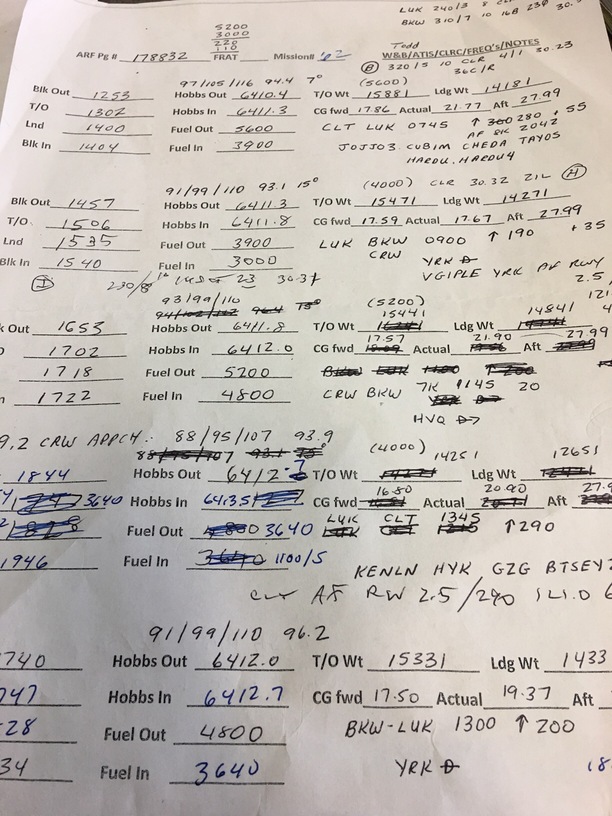 5200
3000
220
110
LUK 240/3 8 CL
BKW 310/7 10 16B 230 30.
ARF Pg # 178832 FRAT Mission# 62
Todd
W&B/ATIS/CLRC/FREQ's/NOTES
B 320/5 10 CLR 4/1 30.23
36C/R
97/105/116 94.4 7°
(5600)
Blk Out 1253 Hobbs Out 6410.4 T/O Wt 15881 Ldg Wt 14181
T/O 1302 Hobbs In 6411.3 CG fwd 17.86 Actual 21.77 Aft 27.99
Lnd 1400 Fuel Out 5600 CLT LUK 0745 ↑ 280 , 55
Blk In 1404 Fuel In 3900 JOJJO3.CUBIM CHEDA TAYOS
HARDU.HARDU4
91/99/110 93.1 15° (4000) CLR 30.32 21L H
Blk Out 1457 Hobbs Out 6411.3 T/O Wt 15471 Ldg Wt 14271
T/O 1506 Hobbs In 6411.8 CG fwd 17.59 Actual 17.67 Aft 27.99
Lnd 1535 Fuel Out 3900 LUK BKW 0900 ↑ 190 + 35
Blk In 1540 Fuel In 3000 CRW YRK D
VGIPLE YRK AF RWY
I 230/8 23 30.37 2.5,
93/99/110 (5200)
15441 14841
k Out 1653 Hobbs Out 6411.8 T/O Wt Ldg Wt
17.57 21.90 27.99
1702 Hobbs In 6412.0 CG fwd Actual Aft
1718 Fuel Out 5200
1722 Fuel In 4800 CRW BKW 7K 1145 20
HVQ D
9.2 CRW APPCH.. 88/95/107 93.9
(4000) 14251 12651
1844 Hobbs Out 6412.7 T/O Wt Ldg Wt
16.80 20.90 27.9
3640 Hobbs In 6413.5 CG fwd Actual Aft
Fuel Out 3640 LUK CLT 1345 ↑290
1946 Fuel In 1100/5
KENLN HYK GZG BTSEY
CLT AF RW 2.5/290
91/99/110 96.2
740 Hobbs Out 6412.0 T/O Wt 15331 Ldg Wt 1433
747 Hobbs In 6412.7 CG fwd 17.50 Actual 19.37 Aft
28 Fuel Out 4800 BKW-LUK 1300 ↑ 200
34 Fuel In 3640 YRK D 18